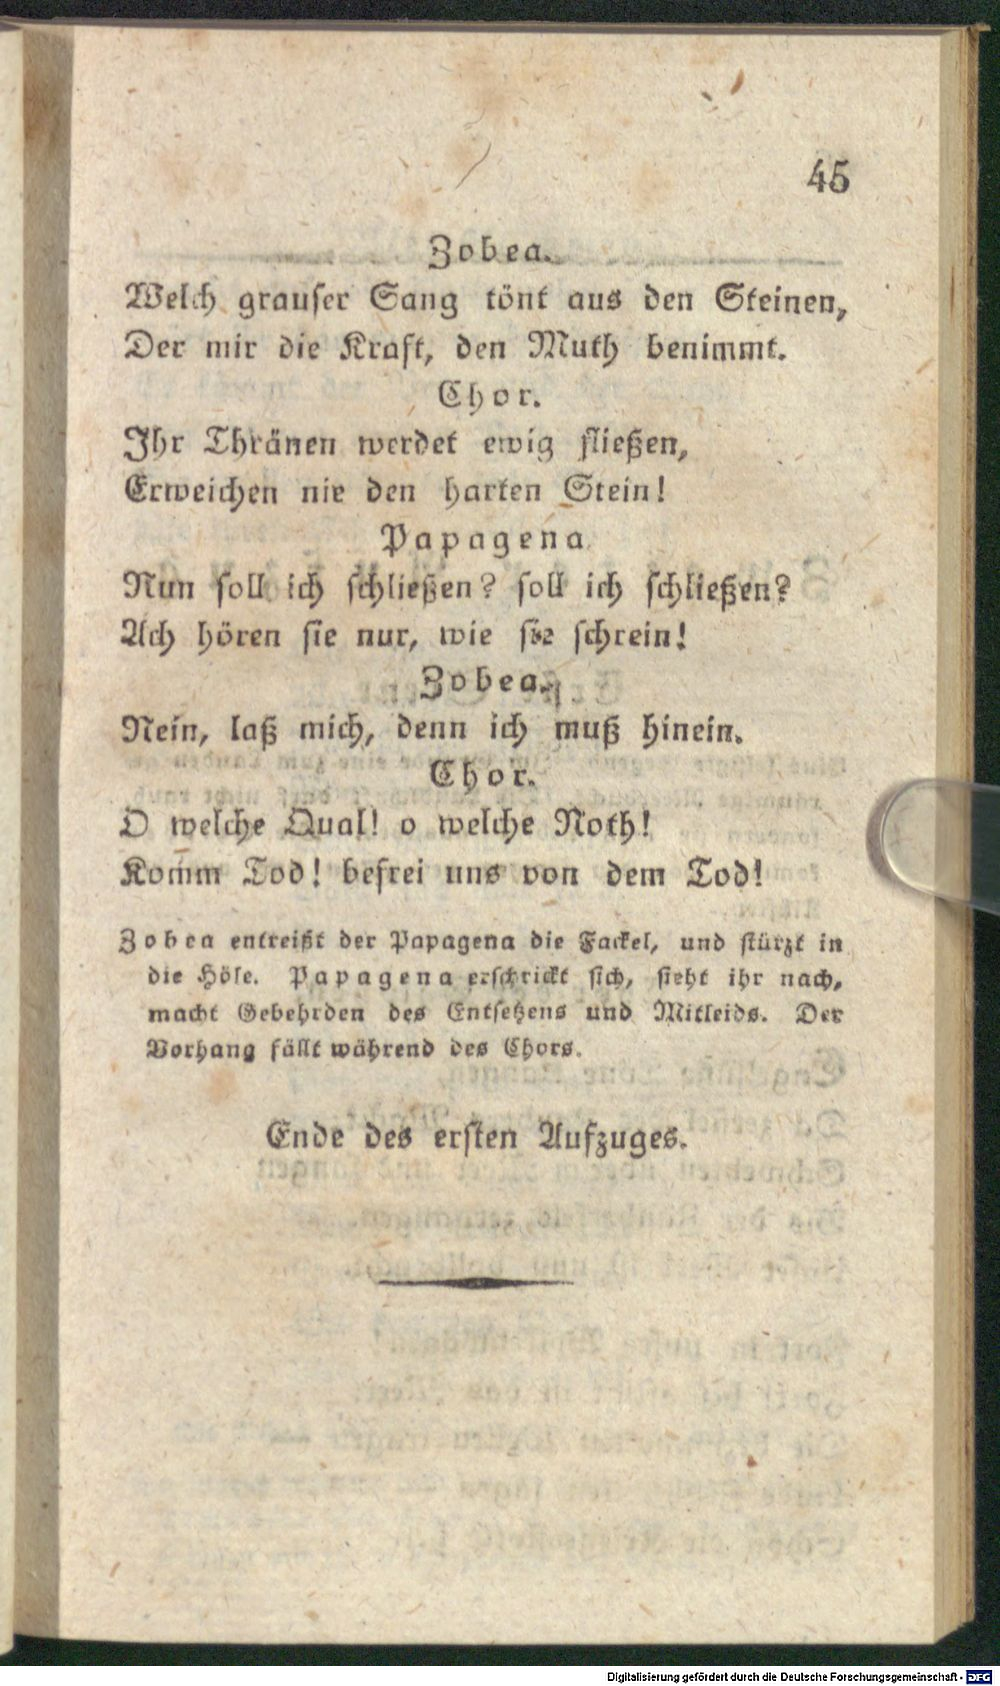 45
Zobea.
Welch grauser Sang tönt aus den Steinen,
Der mir die Kraft, den Muth benimmt.
Chor.
Ihr Thränen werdet ewig fließen,
Erweichen nie den harten Stein!
Papagena.
Nun soll ich schließen? soll ich schließen?
Ach hören sie nur, wie sie schrein!
Zobea.
Nein, laß mich, denn ich muß hinein.
Chor.
O welche Qual! o welche Noth!
Komm Tod! befrei uns von dem Tod!
Zobea entreißt der Papagena die Fackel, und stürzt in
die Höle. Papagena erschrickt sich, sieht ihr nach,
macht Gebehrden des Entsetzens und Mitleids. Der
Vorhang fällt während des Chors.
Ende des ersten Aufzuges.
Digitalisierung gefördert durch die Deutsche Forschungsgemeinschaft - DFG